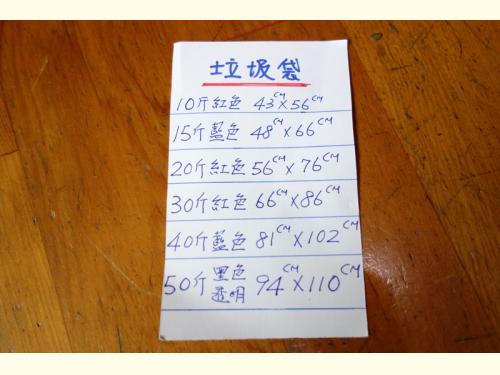 垃圾袋
10斤紅色 43CM×56CM
15斤藍色 48CM×66CM
20斤紅色 56CM×76CM
30斤紅色 66CM×86CM
40斤藍色 81CM×102CM
50斤黑色透明 94CM×110CM